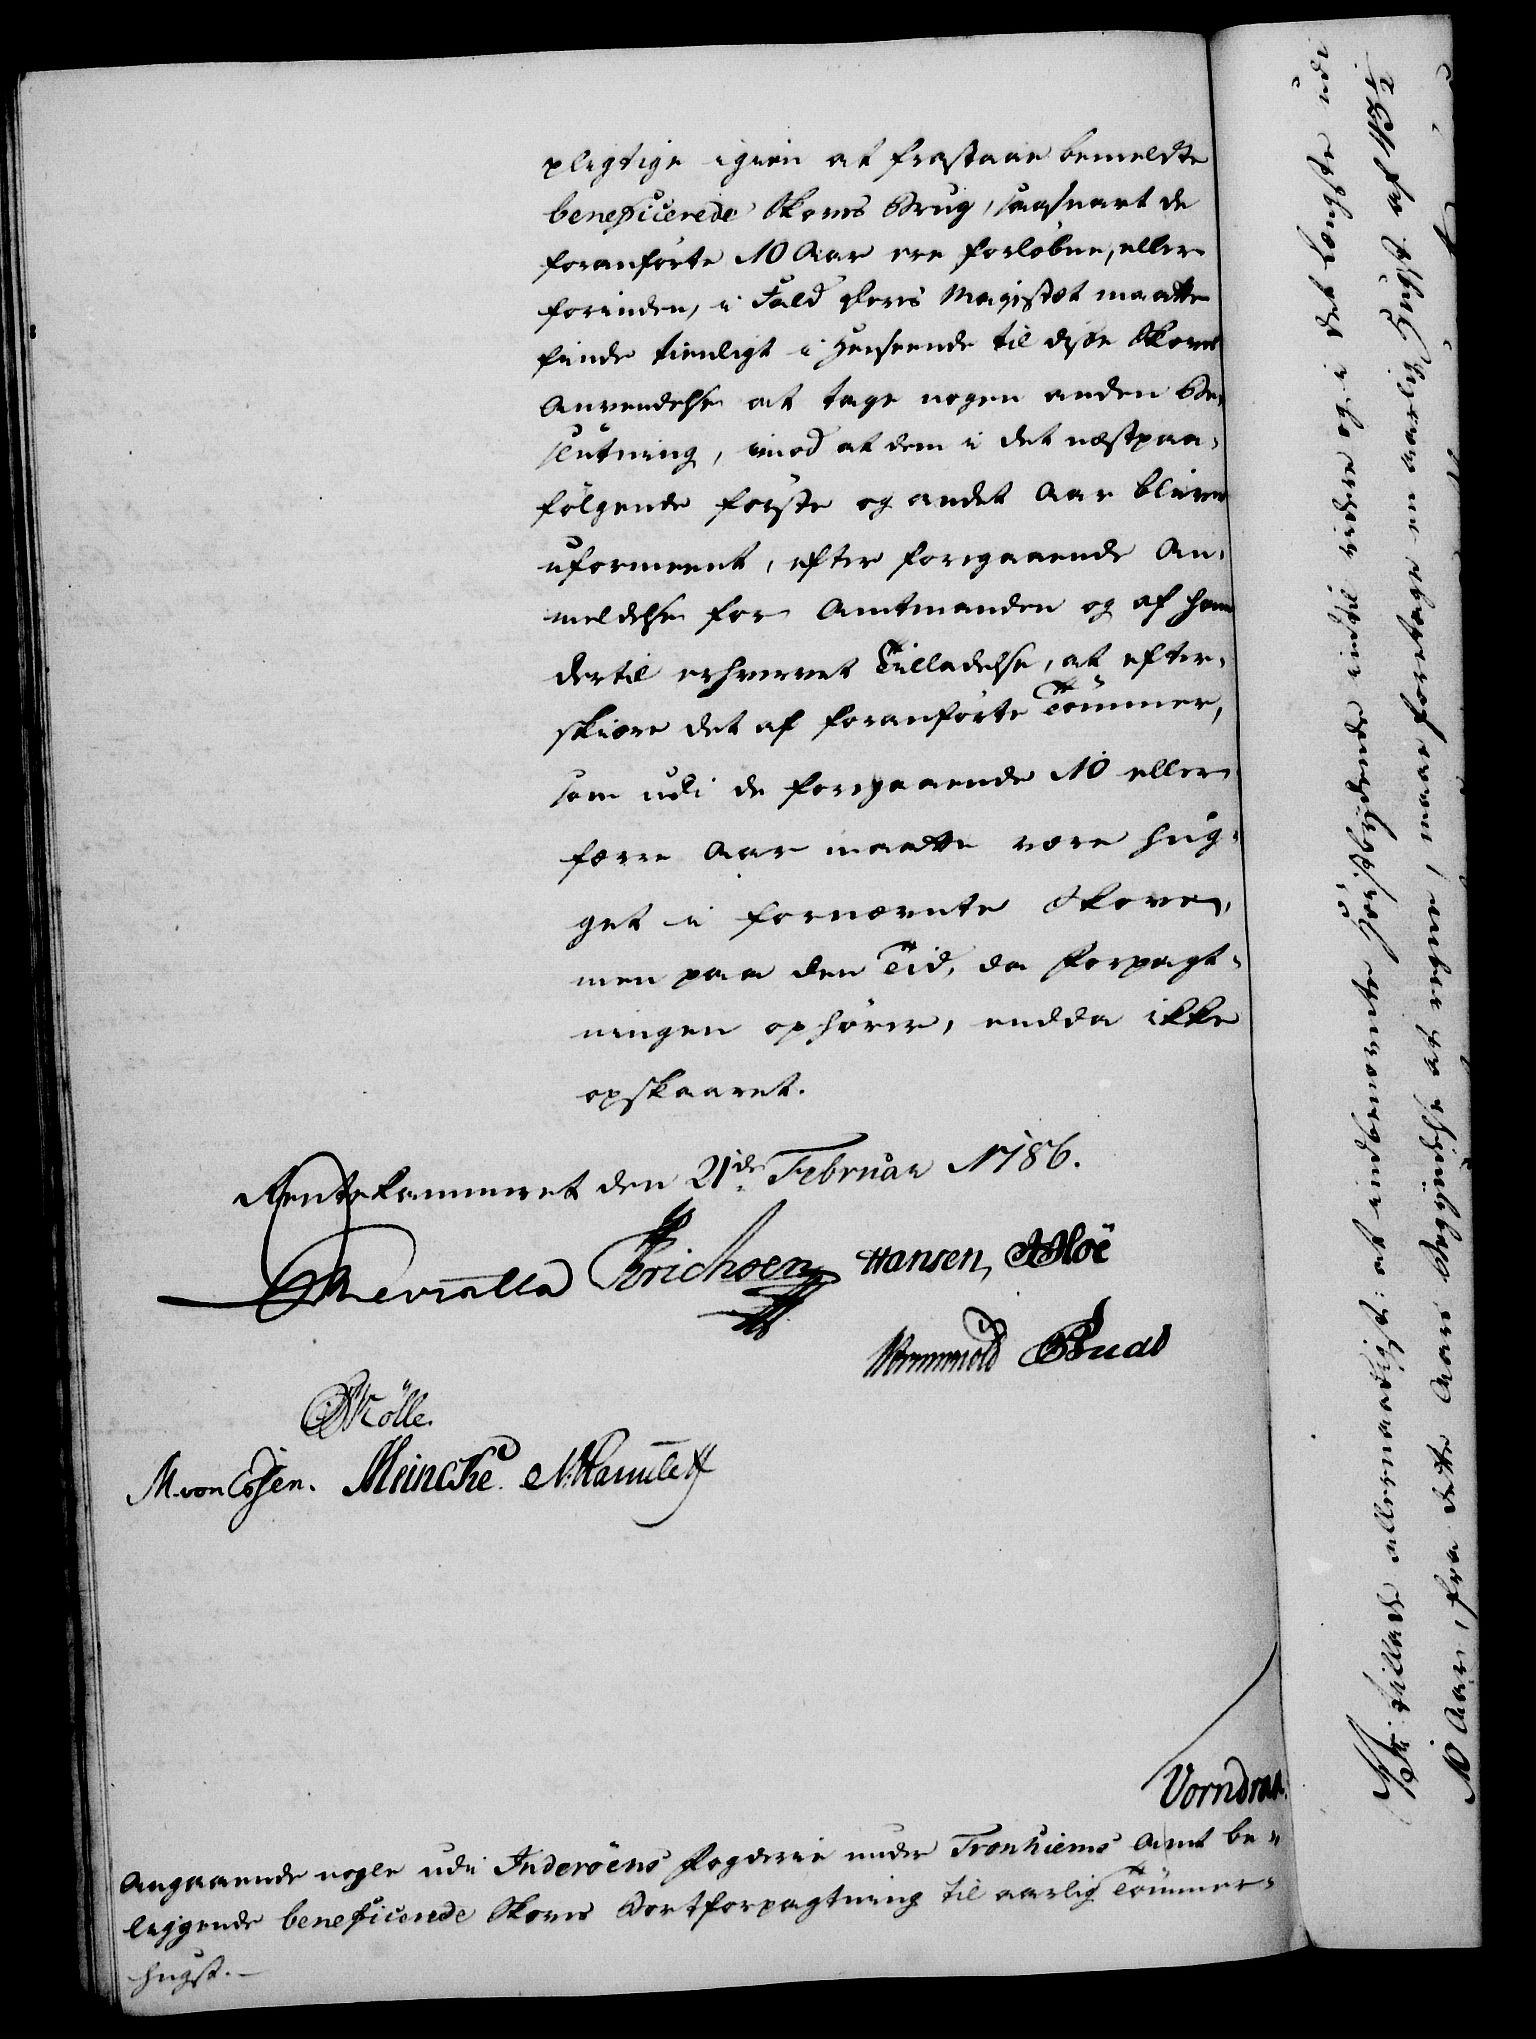 pligtige igien at frastaae bemeldte
beneficerede Skoves Brug, saasnart de
foranførte 10 Aar ere forløbne, eller
forinden, i Fald Deres Majestæt maatte
finde tienligt i Henseende til disse Skoves
Anvendelse at tage nogen anden Be-
slutning, imod at dem i det næstpaa-
følgende første og andet Aar bliver
uformeent, efter foregaaende An-
meldelse for Amtmanden og af ham
dertil erhvervet Tilladelse, at efter-
skiære det af foranførte Tømmer,
som udi de foregaaende 10 eller
færre Aar maatte være hug-
get i fornævnte Skove,
men paa den Tid, da Forpagt-
ningen ophører, endda ikke
opskaaret.
Rentekammeret den 21de Februar 1786.
Erichsen Hansen,
Wormskiold
Mölle.
M. von Essen. Meincke.
Vorndran.
Angaaende nogle udi Inderöens Fogderie under Tronhiems Amt be-
liggende beneficerede Skoves Bortforpagtning til aarlig Tømmer-
hugst.
Vi tillade allernaadigst: at indbemeldte Høistbydende indtil videre og i det Længste udi
10 Aar, fra dette Aars Begyndelse at regne, maae foretage en aarlig Hugst af 13½